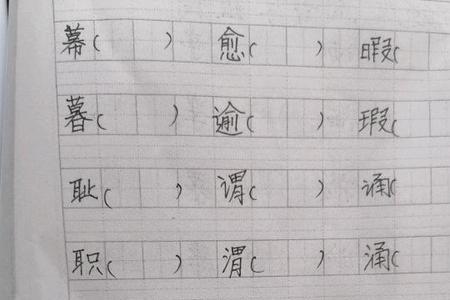 幕(　　)　愈(　　)　暇(
暮(　　)　逾(　　)　瑕(
耻(　　)　谓(　　)　诵(
职(　　)　渭(　　)　涌(